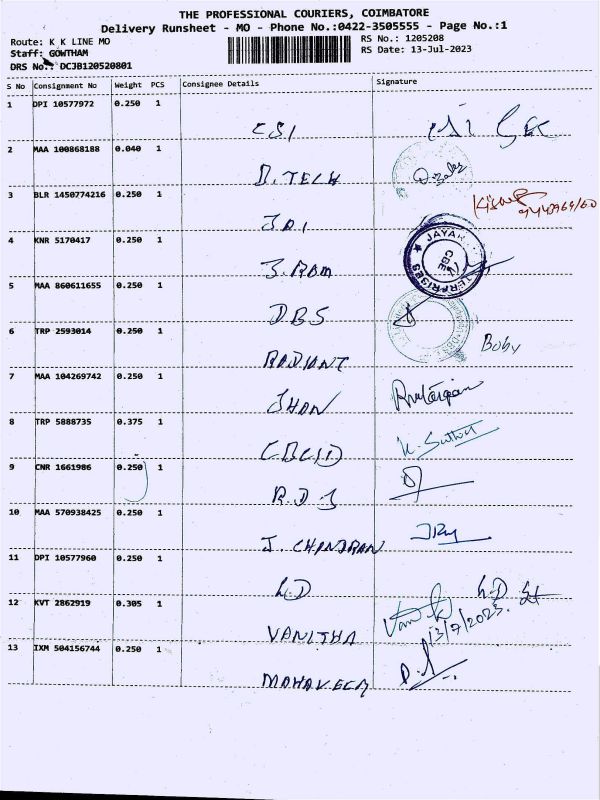 THE PROFESSIONAL COURIERS, COIMBATORE
Delivery Runsheet - MO - Phone No.:0422-3505555 - Page No.:1
Route: K K LINE MO RS No.: 1205208
Staff: GOWTHAM RS Date: 13-Jul-2023
DRS No.: DCJB120520801
S No Consignment No Weight PCS Consignee Details Signature
1 DPI 10577972 0.250 1
CSI
2 MAA 100868188 0.040 1
D. TECH
3 BLR 1450774216 0.250 1
JAI
4 KNR 5170417 0.250 1
JAYA
CBE
ERPRISES
J. RAM
5 MAA 860611655 0.250 1
DBS
6 TRP 2593014 0.250 1
Boby
RADIANT
7 MAA 104269742 0.250 1
JHAN
8 TRP 5888735 0.375 1
K. Sathish
9 CNR 1661986 0.250 1
R.D.J
10 MAA 570938425 0.250 1
J. CHANDRAN
11 DPI 10577960 0.250 1
L.D
12 KVT 2862919 0.305 1
13/7/2023.
VANITHA
13 IXM 504156744 0.250 1
MAHAVEER